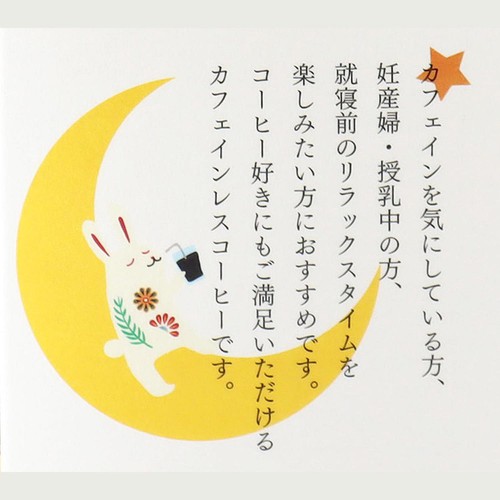 カフェインを気にしている方、
妊産婦・授乳中の方、
就寝前のリラックスタイムを
楽しみたい方におすすめです。
コーヒー好きにもご満足いただける
カフェインレスコーヒーです。